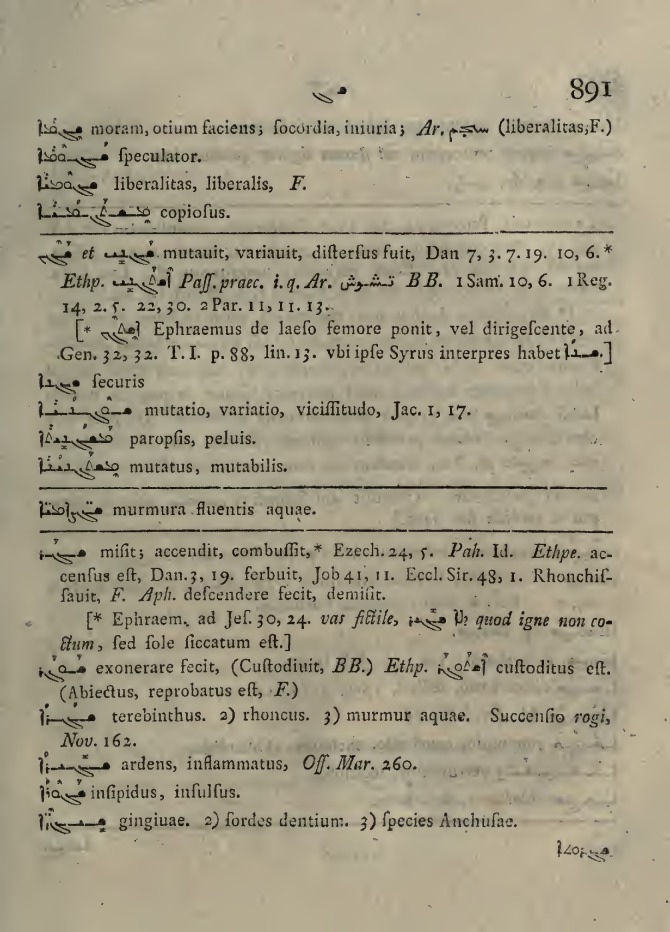 ܫܓ 891
moram, otium faciens; ſocordia, iniuria; Ar. سجم (liberalitas, F.)
ܫܓܘܡܐ ſpeculator.
liberalitas, liberalis, F.
copioſus.
et mutauit, variauit, diſterſus fuit, Dan 7, 3. 7. 19. 10, 6.*
Ethp. Paſſ. praec. i. q. Ar. تشوش BB. 1 Sam. 10, 6. 1 Reg.
14, 2. 5. 22, 30. 2 Par. 11, 11. 13.
[* Ephraemus de laeſo femore ponit, vel dirigeſcente, ad
Gen. 32, 32. T. I. p. 88, lin. 13. vbi ipſe Syrus interpres habet .]
ſecuris
mutatio, variatio, viciſſitudo, Jac. 1, 17.
paropſis, peluis.
mutatus, mutabilis.
murmura fluentis aquae.
ܫܓܪ miſit; accendit, combuſſit,* Ezech. 24, 5. Pah. Id. Ethpe. ac-
cenſus eſt, Dan. 3, 19. ferbuit, Job 41, 11. Eccl. Sir. 48, 1. Rhonchiſ-
ſauit, F. Aph. deſcendere fecit, demiſit.
[* Ephraem. ad Jeſ. 30, 24. vas fictile, ܫܓܝܪ ܕܠܐ quod igne non co-
ctum, ſed ſole ſiccatum eſt.]
ܫܘܓܪ exonerare fecit, (Cuſtodiuit, BB.) Ethp. ܐܫܬܘܓܪ cuſtoditus eſt.
(Abiectus, reprobatus eſt, F.)
ܫܓܪܐ terebinthus. 2) rhoncus. 3) murmur aquae. Succenſio rogi,
Nov. 162.
ܫܓܝܪܐ ardens, inflammatus, Off. Mar. 260.
inſipidus, inſulſus.
gingiuae. 2) ſordes dentium. 3) ſpecies Anchuſae.
ܫܓܪܘܬܐ